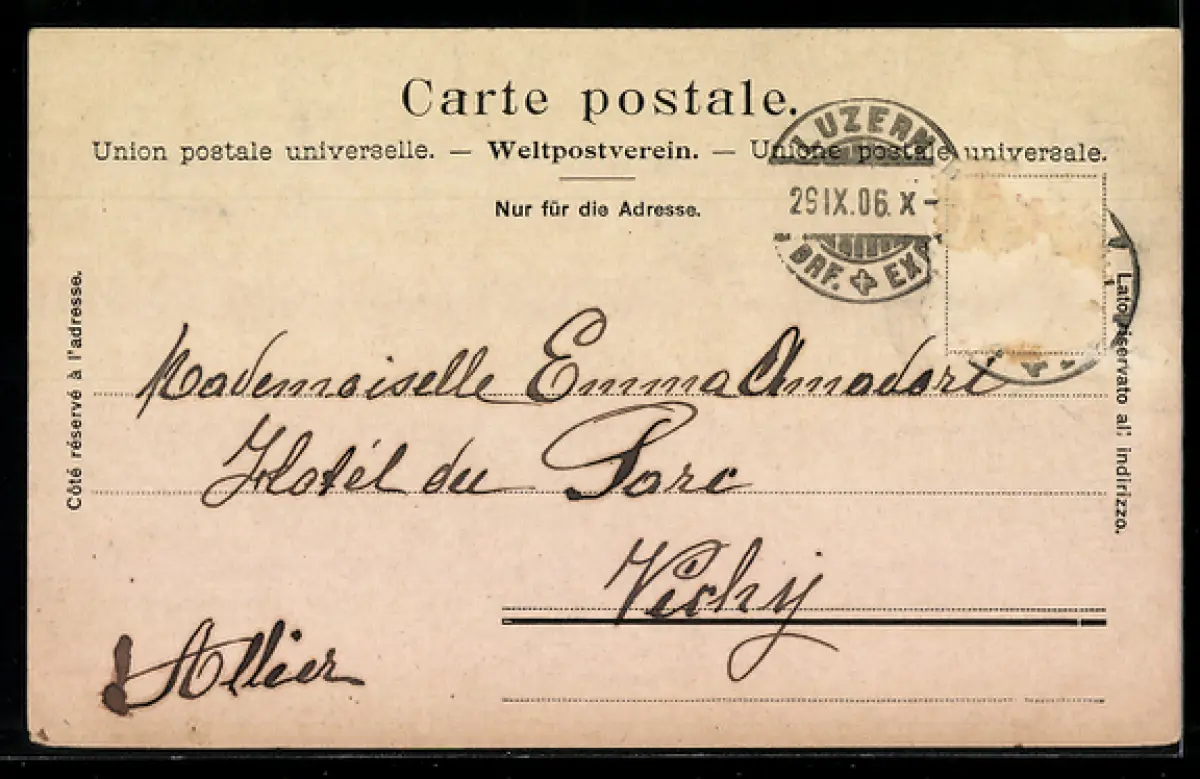 Carte postale.
Union postale universelle. — Weltpostverein. — Unione postale universale.
Nur für die Adresse.
LUZERN
29 IX.06. X-
BRF. EXP
Côté réservé à l'adresse.
Lato riservato all' indirizzo.
Mademoiselle Emma Amadori
Hotél du Parc
Vichy
Allier